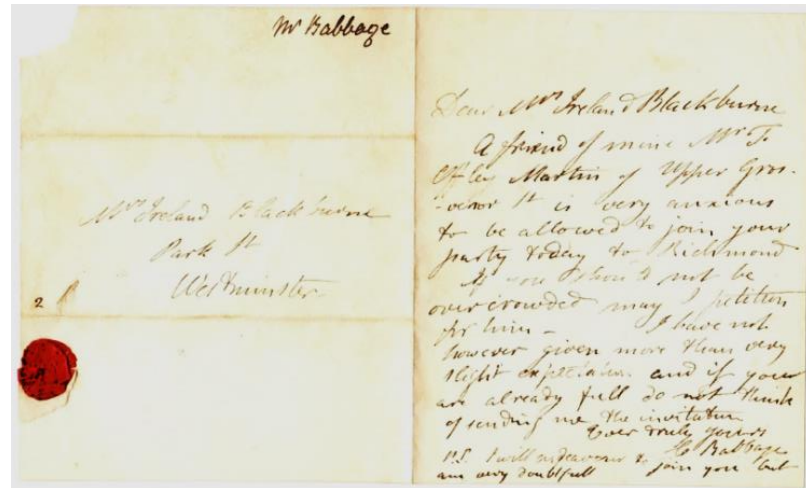 Mr Babbage
Mrs Ireland Blackburne
Park St
Westminster
2
Dear Mrs Ireland Blackburne
A friend of mine Mr T.
Offley Martin of Upper Gros-
-venor St is very anxious
to be allowed to join your
party today to Richmond
If you should not be
overcrowded may I petition
for him – I have not
however given more than very
slight expectation and if you
are already full do not think
of sending me the invitation
Ever truly yours
C Babbage
P.S. I will endeavour to join you but
am very doubtfull